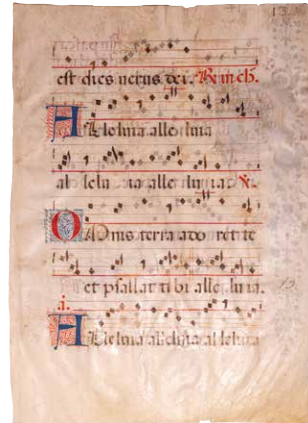 est dies uerus dei.
Alleluia alle luia
al lelu ia alle luia
Omnis terra ado ret te
et psallat ti bi alle luia.
Alleluia alleluia al leluia